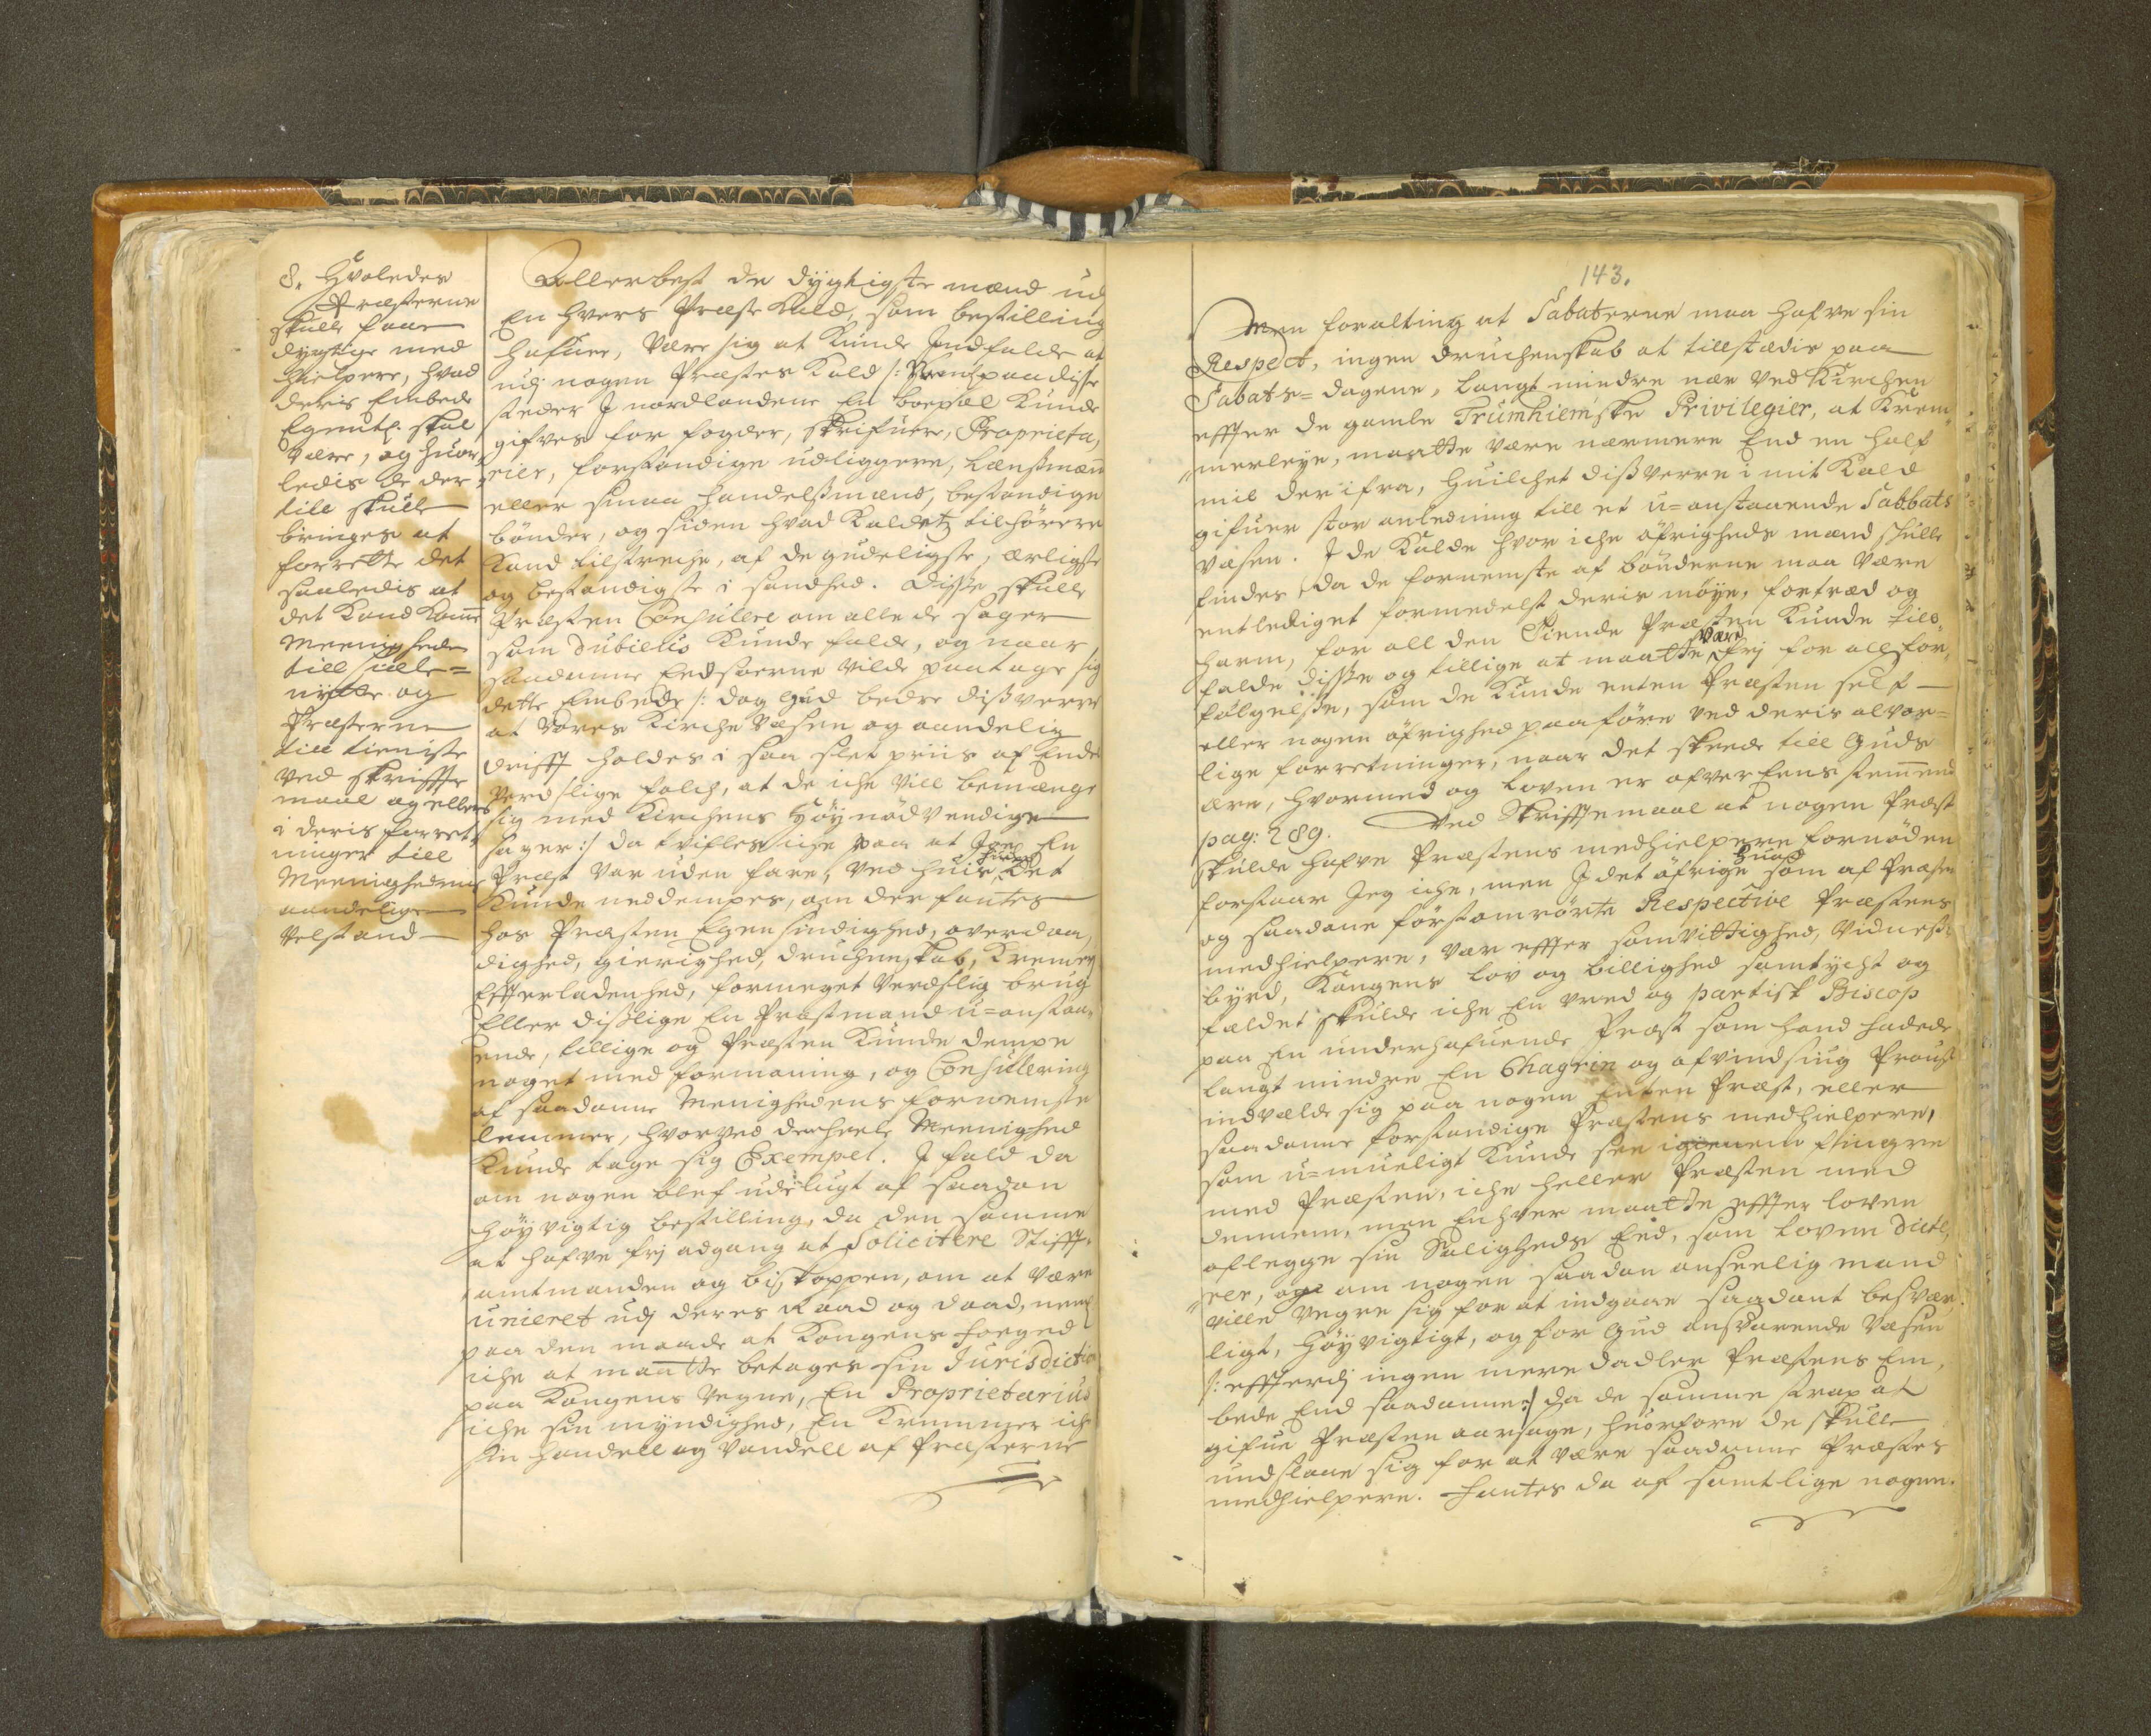 8. Hvoledes
Præsterne
skulle faae
dygtige med
hielpere, hvad
deris Embede
Egentl. skal
være, og huor
ledis de der
till skulle
bringes at
forrette det
saaledis at
det kand komme
Meenigheden
till siæle=
nytte og
Præsterne
till tieniste
ved skriffte
maal og ellers
i deris forret
ninger till
Meenighedens
aandelige
velstand
Allerbest de dygtigste mænd udj
En hvers Præste Kald, som bestilling
hafuer, være sig at kunde Indfalde at
udj nogen Præstes Kald /: paa disse
steder I nordlandene En kunde
gifves for fogder, skrifuere, Proprieta,
rier, forstandige udliggere, Lænßmænd
eller smaa handelßmænd, bestandige
bönder, og siden hvad Kaldetz tilhörere
Kand tilstreche, af de gudeligste, ærligste
og bestandigste i sandhed. Disse skulle
Præsten Consullere om alle de sager
som dubielis kunde falde, og naar
saadanne Eedsorne vilde paatage sig
dette Embede /: dog Gud bedre dißverre
at vores Kirche væsen og aandelig
drifft holdes i saa slet priis af Ende
verdslige folch, at de iche vill bemænge
sig med Kirchens Höynödvendige
sager :/ da tvifles iche paa at Jeg En
Præst var uden fare, ved huis det
kunde neddempes, om der fantes
hos Præsten Egensindighed, overdaa,
dighed, gierighed, druchenskab, Kremerj
Effterladenhed, formeget verdslig brug
Eller dißlige En Præstmand u=anstaa,
ende, tillige og Præsten kunde dempe
noget med formaning, og Consulering
af saadanne Menighedens fornemste
lemmer, hvorved den heele Meenighed
kunde tage sig Exempel. I fald da
om nogen blef udelugt af saadan
höyvigtig bestilling, da den samme
at hafve frj adgang at Solicitere Stifft,
amtmanden og biskoppen, om at være
unieret udj deres Raad og daad, neml.
paa den maade at Kongens foeged
iche at maatte betages sin Jurisdiction
paa Kongens vegne, En Proprietarius
iche sin myndighed, En Kremmer iche
sin handell og vandell af Præsterne
143.
Men for alting at Sabaterne maa hafve sin
Respect, ingen druchenskab at tillstædis paa
Sabats=dagene, langt mindre nær ved Kirchen
effter de gamle Trumhiemske Privilegier, at Krem
merleye, maatte være nærmere End en half
mil der ifra, huilchet dißverre i mit Kald
gifuer stor anledning till et u=anstaaende Sabbats
væsen. I de Kalde hvor iche öfrigheds mænd skulle
findes, da de fornemste af bönderne maa være
entlediget formedelst deris möye, fortræd og
harm, for all den Tiende Præsten kunde till,
falde disse og tillige at maatte være frj for all for,
fölgelße, som de kunde enten Præsten self
eller nogen öfrighed paaföre ved deris alvor=
lige forretninger, naar det skeede till Guds
ære, hvormed og loven er ofverEensstemmend
pag: 289. Ved Skrifftemaal at nogen Præst
skulde hafve Præstens medhielpere fornöden
forstaar Jeg iche, men I det öfrige huad som af Præsten
og saadane förstomrörte Respective Præstens
medhielpere, var effter samvittighed, vidneß,
byrd, Kongens lov og billighed samtycht og
fældet skulde iche En vred og partisk Biscop
paa En underhafuende Præst som hand hadede
langt mindre En Chagrin og afvindsiug Proust
indvælde sig paa nogen Enten Præst, eller
saadanne forstandige Præstens medhielpere,
som u=mueligt kunde see igienem fingre
med Præsten, iche heller Præsten med
dennem, men Enhver maatte effter loven
aflegge sin Saligheds Eed, som loven dicte,
rer, og om nogen saadan anseelig mand
ville vegre sig for at indgaae saadant besvær,
ligt, höyvigtigt, og for Gud ansvarende væsen
/: effterdj ingen mere dadler Præstens Em,
bede End saadanne :/ da de samme strax at
gifue Præsten aarsage, huorfore de skulle
undslaae sig for at være saadanne Præstes
medhielpere. Fantes da af samtlige nogen